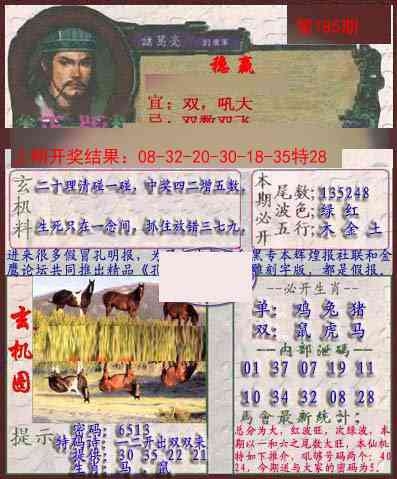 第195期
諸葛亮
稳赢
宜：双，吼大
忌：双数双飞
上期开奖结果：08-32-20-30-18-35特28
玄机料
二十理清碰一碰，中奖四二增五数，
生死只在一念间，抓住放错三七九，
本期必开
尾数；135248
波色；绿 红
五行；木 金 土
进来很多假冒孔明报，为
黑专本辉煌报社联和金
鹰论坛共同推出精品《孔
雕刻字版，都是假报，
玄机图
必开生肖
单：鸡 兔 猪
双：鼠 虎 马
内部泄码
01 37 07 19 11
10 34 32 08 28
馬會最新統计：
总分为大，红波旺，次绿波，本
期以一和六之尾数大旺，本仙机
特如下推介，吼够号码两个：40
24，今期送与大家的密码为5．
提示
密码：6513
特码诗：一二开出双双来
提供：30 35 22 21
生肖：马．鼠